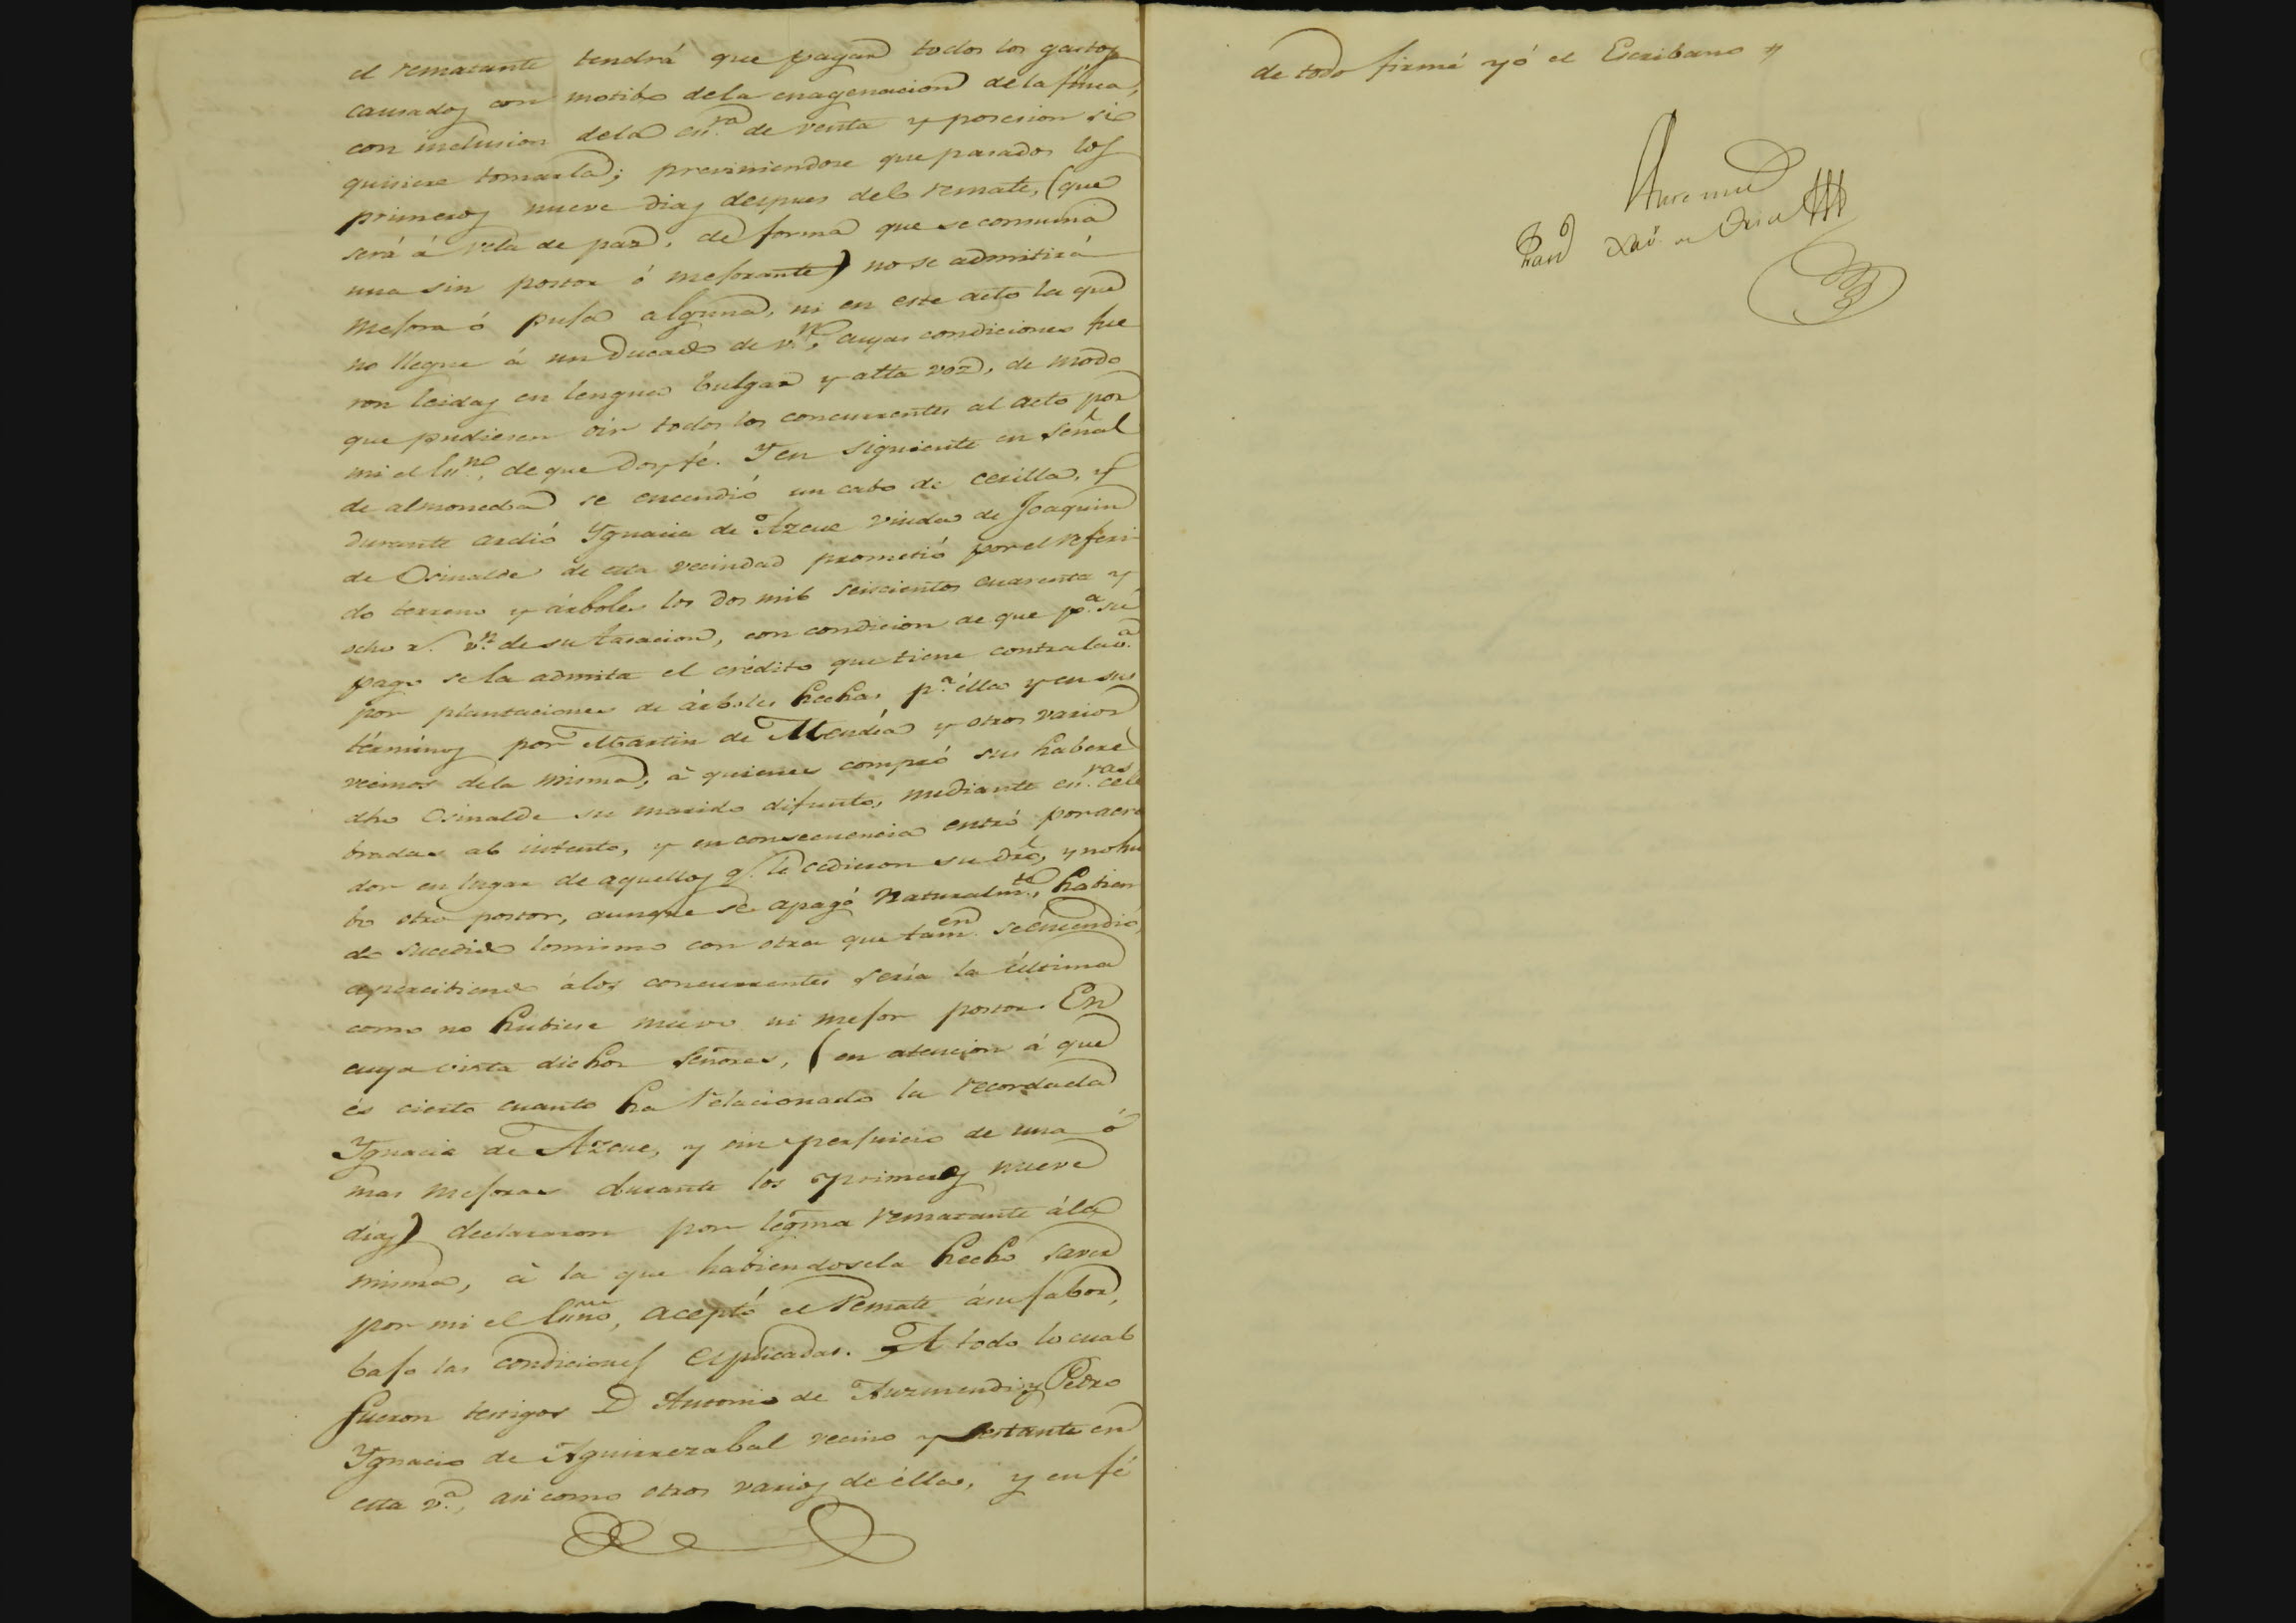 el rematante tendrá que pagar todos los gastos
causados con motibo dela enagenacion dela finca,
con inclusion dela esc.ra de venta y posesion si
quisiere tomarla; previniendose que pasados los
primeros nueve dias despues del remate, (que
será á vela de paz, de forma que se consuma
una sin postor ó mejorante) no se admitirá
mejora ó puja alguna, ni en este acto la que
no llegue á un Ducado de v.n, cuyas condiciones fue
ron leidas en lengua bulgar y alta voz, de modo
que pudiesen oir todos los concurrentes al acto por
mi el Ess.no, de que doy fé. Y en siguiente en señal
de almoneda se encendió un cabo de cerilla, y
durante ardió Ygnacia de Azcue viuda de Joaquin
de Osinalde de esta vecindad prometió por el referi-
do terreno y árboles los dos mil seiscientos cuarenta y
ocho r.s v.n de su tasacion, con condicion de que p.a su
pago se la admita el crédito que tiene contra la v.a
por plantaciones de árboles hechas p.a élla y en sus
términos por Martin de Mendia y otros varios
vecinos dela misma, á quienes compró sus habere
dho Osinalde su marido difunto, mediante es.ras cele
bradas al intento, y en consecuencia entró por acre
dor en lugar de aquellos q.e le cedieron su dro, y no hu
bo otro postor, aunque se apagó naturalm.te, habien
do sucedido lo mismo con otra que tam.en se encendió,
apercibiendo á los concurrentes sería la última
como no hubiese nuevo ni mejor postor. En
cuya vista dichos Señores, (en atencion á que
és cierto cuanto ha relacionado la recordada
Ygnacia de Azcue, y sin perjuicio de una ó
mas mejoras durante los primeros nueve
dias) declararon por legma rematante á la
misma, á la que habiendosela hecho saver
por mi el Essno, aceptó el remate á su fabor,
bajo las condiciones esplicadas. A todo lo cual
fueron testigos D Antonio de Auzmendi y Pedro
Ygnacio de Aguirrezabal vecino y estante en
esta v.a, asi como otros varios de élla, y en fé
de todo firmé yó el Escribano